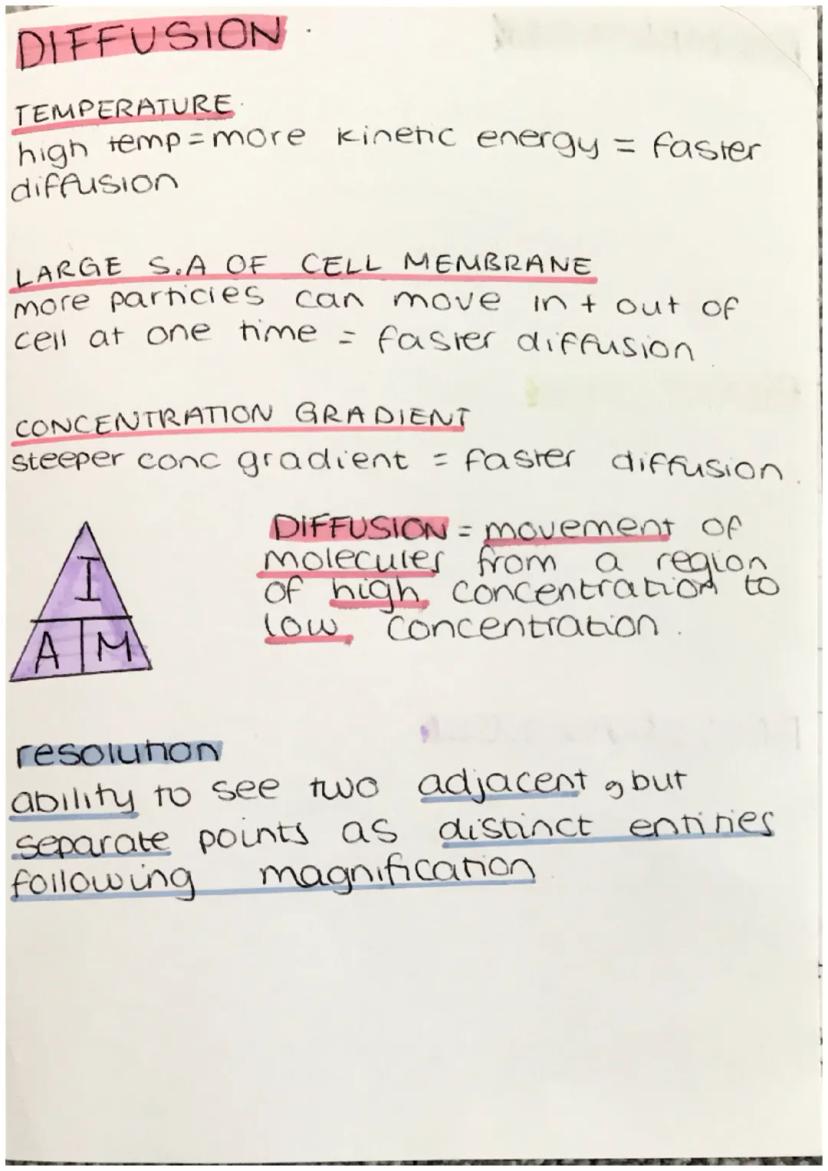 DIFFUSION
TEMPERATURE
high temp = more kinetic energy = faster
diffusion
LARGE S.A OF CELL MEMBRANE
more particles can move in + out of
cell at one time = faster diffusion
CONCENTRATION GRADIENT
steeper conc gradient = faster diffusion
DIFFUSION = movement of
molecules from a region
of high concentration to
low concentration.
I
A M
resolution
ability to see two adjacent, but
separate points as distinct entities
following magnification